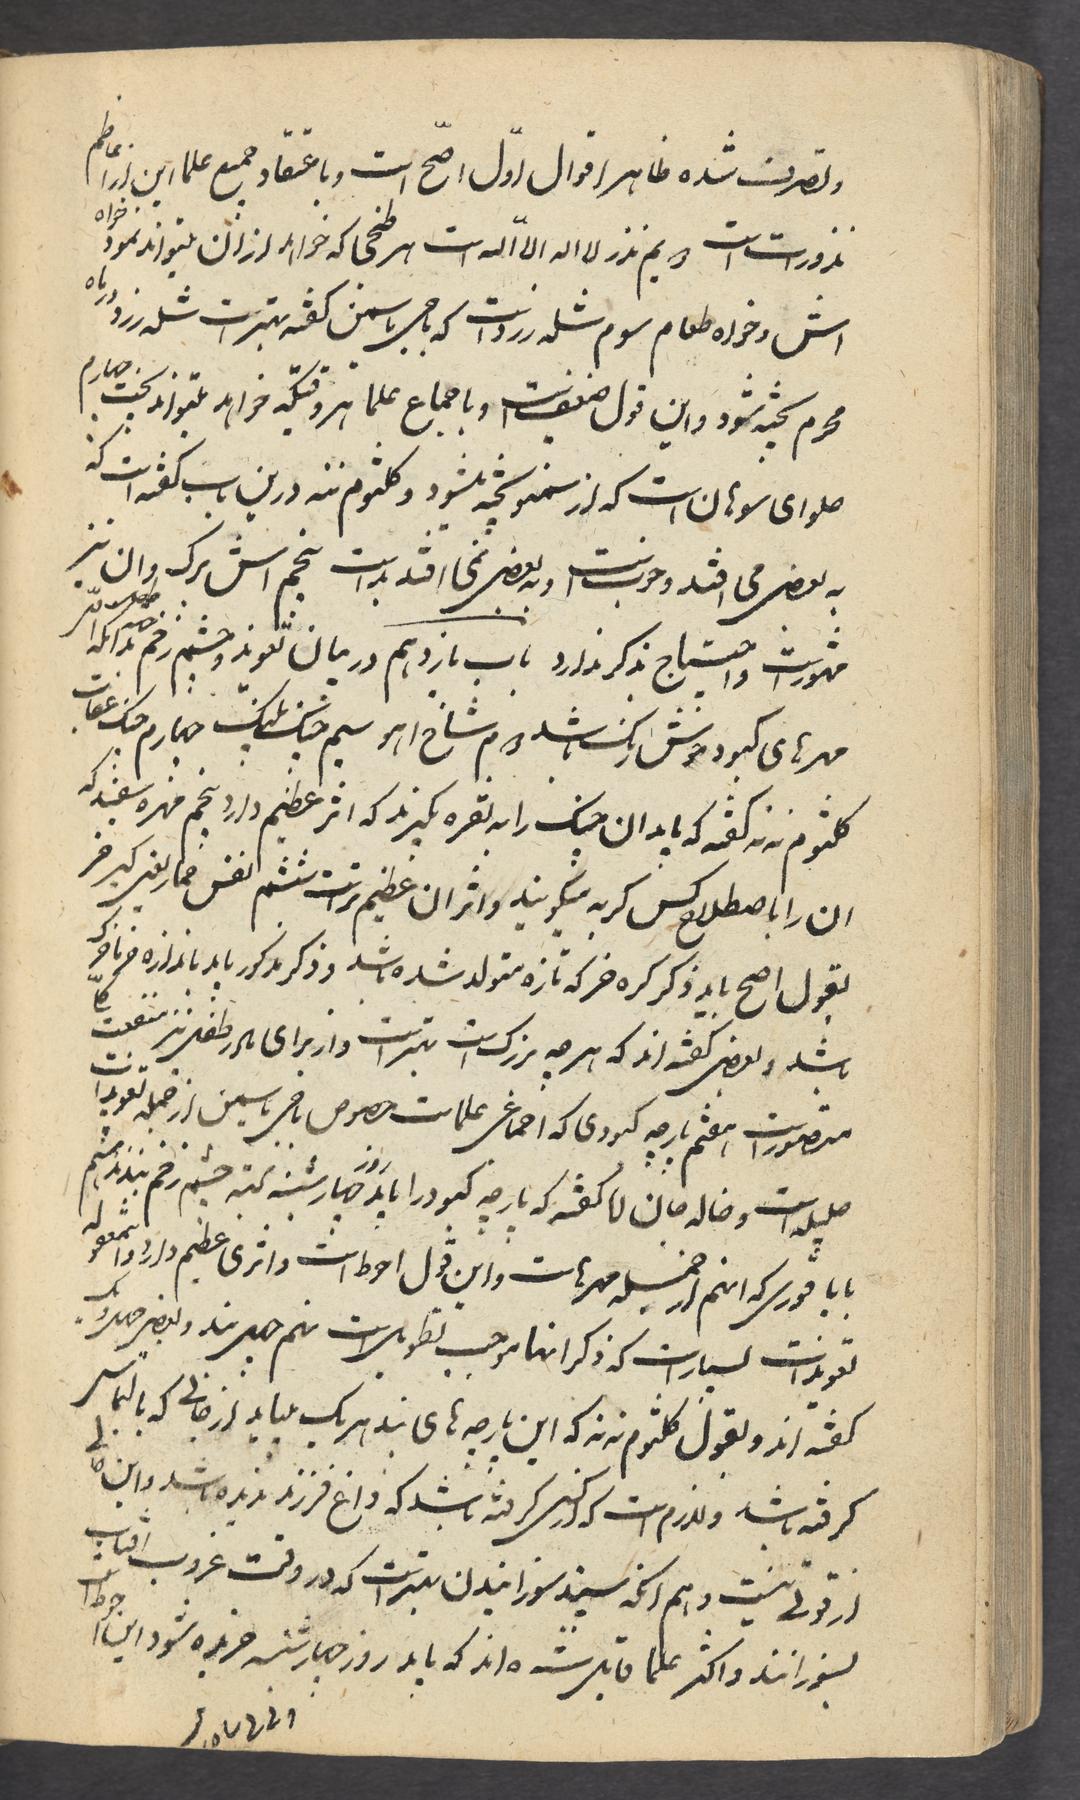 و تصرف شده ظاهر اقوال اوّل اصّح است و باعتقاد جمیع علما این از اعاظم
نذورات است دویم نذر لا اله الا اللّه است هر طبخی که خواهد از آن میتواند نمود خواه
اش و خواه طعام سوم شله زرد است که باجی یاسمن گفته بهتر است شله زرد در ماه
محرم پخته شود و این قول ضعیف است و باجماع علما هر وقتیکه خواهد میتواند پخت چهارم
حلوای سوهان است که از سمنو پخته میشود و کلثوم ننه درین باب گفته است که
به بعضی می افتد و خوب است و به بعضی نمی افتد بد است پنجم اش برگ و ان نیز
مشهور است و احتیاج بذکر ندارد باب یازدهم در بیان تعویذ و چشم زخم بدانکه
مهرهای کبود خوش رنگ باشد دویم شاخ اهو سیم چنگ پلنگ چهارم چنگ عقاب
کلثوم ننه گفته که باید ان چنگ را به نقره بگیرند که اثر عظیم دارد پنجم مهره سفید که
ان را باصطلاح کس گربه میگویند و اثر ان عظیم تر است ششم نفس خمار یعنی کیر خر
بقول اصح باید ذکر کره خر که تازه متولد شده باشد و ذکر مذکور باید باندازه
باشد و بعضی گفته اند که هر چه بزرگ است بهتر است و از برای مادر طفل نیز منفعت کلّی
متصور است هفتم پارچه کبودی که اجماعی علماست خصوص باجی یاسمن از جمله تعویذات
جلیله است و خاله جان اقا گفته که پارچه کبود را باید روز چهارشنبه بجهة چشم زخم ببندند هشتم
بابا قوری که انهم از جمله مهرهاست و این قول احوط است و اثری عظیم دارد و
تعویذات بسیار است که ذکر انها موجب تطویل است نهم چهل بند و بعضی
گفته اند و بقول کلثوم ننه که این پارچه های بند هر یک میباید از خانه که بالتماس
گرفته باشد و لازم است که از کسی گرفته باشد که داغ فرزند ندیده باشد و این خالی
از قوتی نیست دهم انکه سپند سوزانیدن بهتر است که در وقت غروب افتاب
بسوزانند و اکثر علما قایل شده اند که باید روز چهارشنبه خریده شود این احوط است